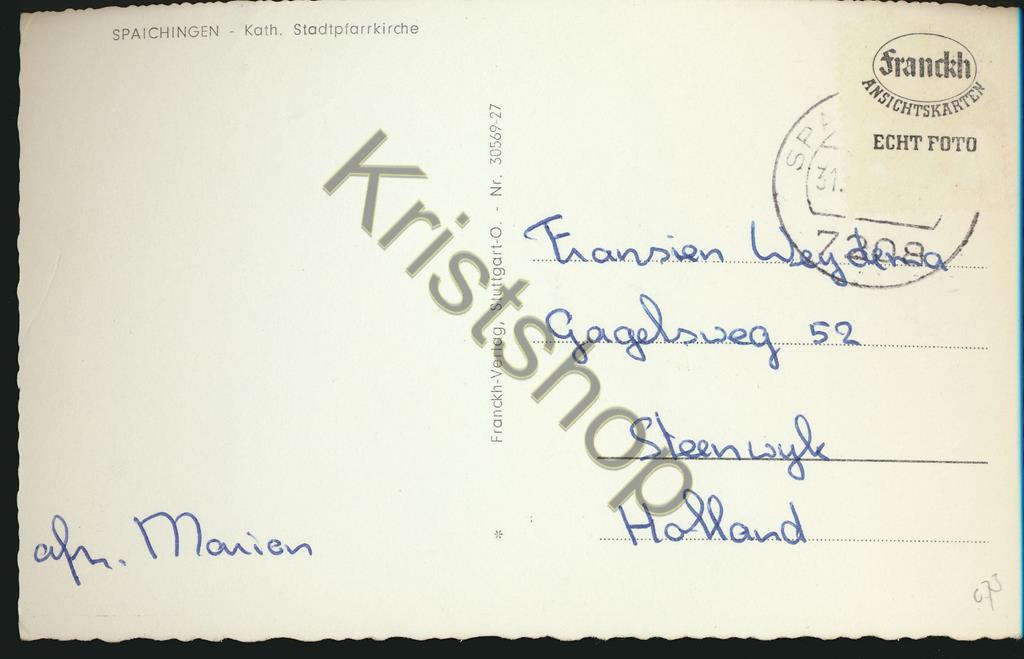 SPAICHINGEN - Kath. Stadtpfarrkirche
Franckh
ANSICHTSKARTEN
ECHT FOTO
SPA
31.
7208
Franckh-Verlag, Stuttgart-O. - Nr. 30569-27
Kristshop
Fransien Weydema
Gagelsweg 52
Steenwyk
Holland
afz. Marion
*
673